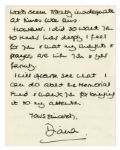 Words seem totally inadequate
at times like this
However, I did so want you
to know how deeply I feel
for you & that my thoughts &
prayers are with you & your
family.
I will of course see what I
can do about the Memorial
Fund & thank you for bringing
it to my attention
Yours sincerely,
Diana